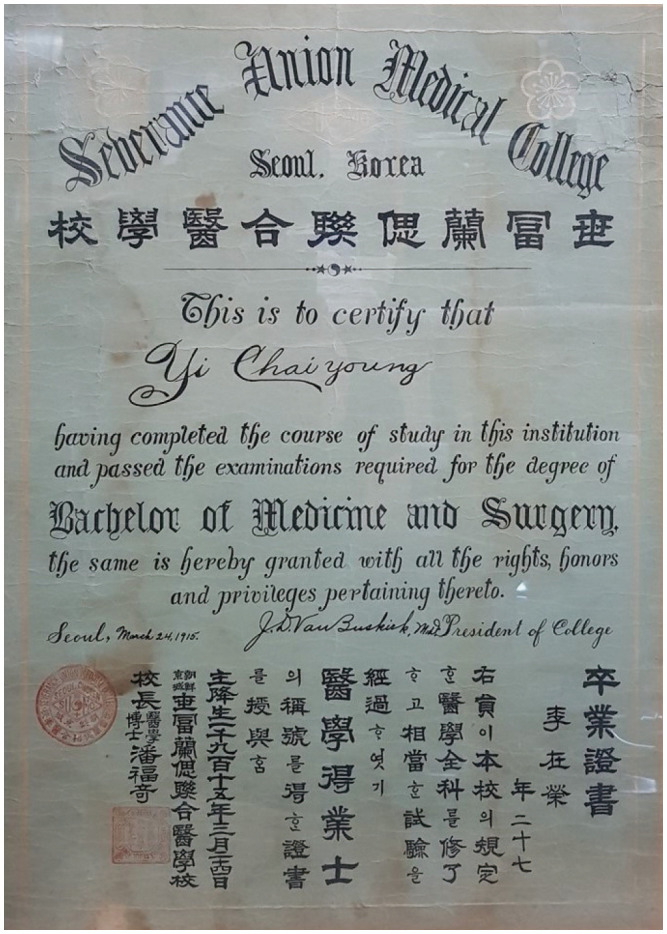 Severance Union Medical College
Seoul. Korea
世冨蘭偲聯合醫學校
This is to certify that
Yi Chaiyoung
having completed the course of study in this institution
and passed the examinations required for the degree of
Bachelor of Medicine and Surgery,
the same is hereby granted with all the rights, honors
and privileges pertaining thereto.
Seoul, March 24, 1915. J. D. VanBuskirk, M.D. President of College
卒業證書
李在榮
年二十七
右員이本校의規定
ᄒᆞᆫ醫學全科를修了
ᄒᆞ고相當ᄒᆞᆫ試驗을
經過ᄒᆞ엿기
醫學得業士
의稱號를得ᄒᆞᆫ證書
를授與ᄒᆞᆷ
主降生一千九百十五年三月廿四日
朝鮮京城世冨蘭偲聯合醫學校
校長醫學博士潘福奇